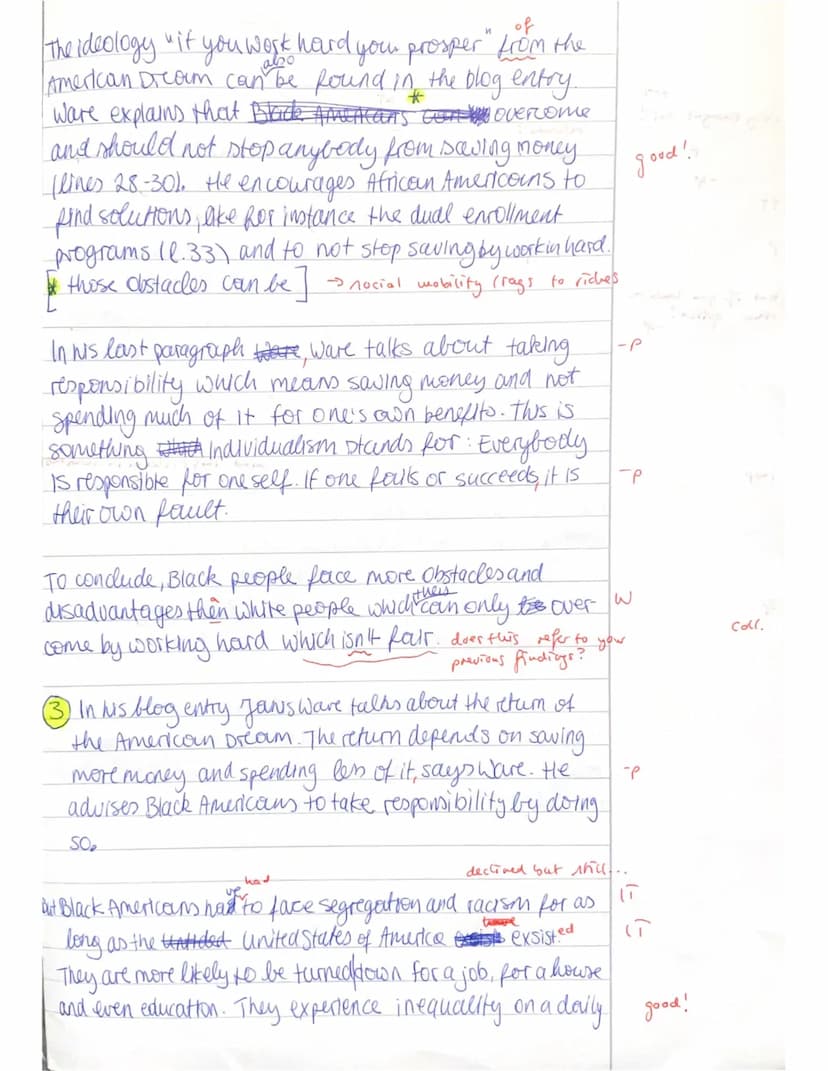 of
The ideology "if you work hard you prosper" from the
also
American Dream can be found in the blog entry.
*
Ware explains that Black Americans overcome
and should not stop anybody from saving money
good!
(lines 28-30). He encourages African Americans to
find solutions, like for instance the dual enrollment
programs (l.33) and to not stop saving by workin hard.
[* those obstacles can be] → social mobility (rags to riches
In his last paragraph Ware, Ware talks about taking -P
responsibility which means saving money and not
spending much of it for one's own benefits. This is
something individualism stands for: Everybody
is responsible for oneself. If one fails or succeeds, it is -P
their own fault.
To conclude, Black people face more obstacles and
disadvantages then white people which can only over- W
coll.
come by working hard which isn't fair. does this refer to your
previous findings?
3 In his blog entry Ware talks about the return of
the American Dream. The return depends on saving
more money and spending less of it, says Ware. He -P
advises Black Americans to take responsibility by doing
so.
declined but still...
had
But Black Americans have to face segregation and racism for as (T
long as the United States of America exsist.ed (T
They are more likely to be turned down for a job, for a house
and even education. They experience inequality on a daily good!